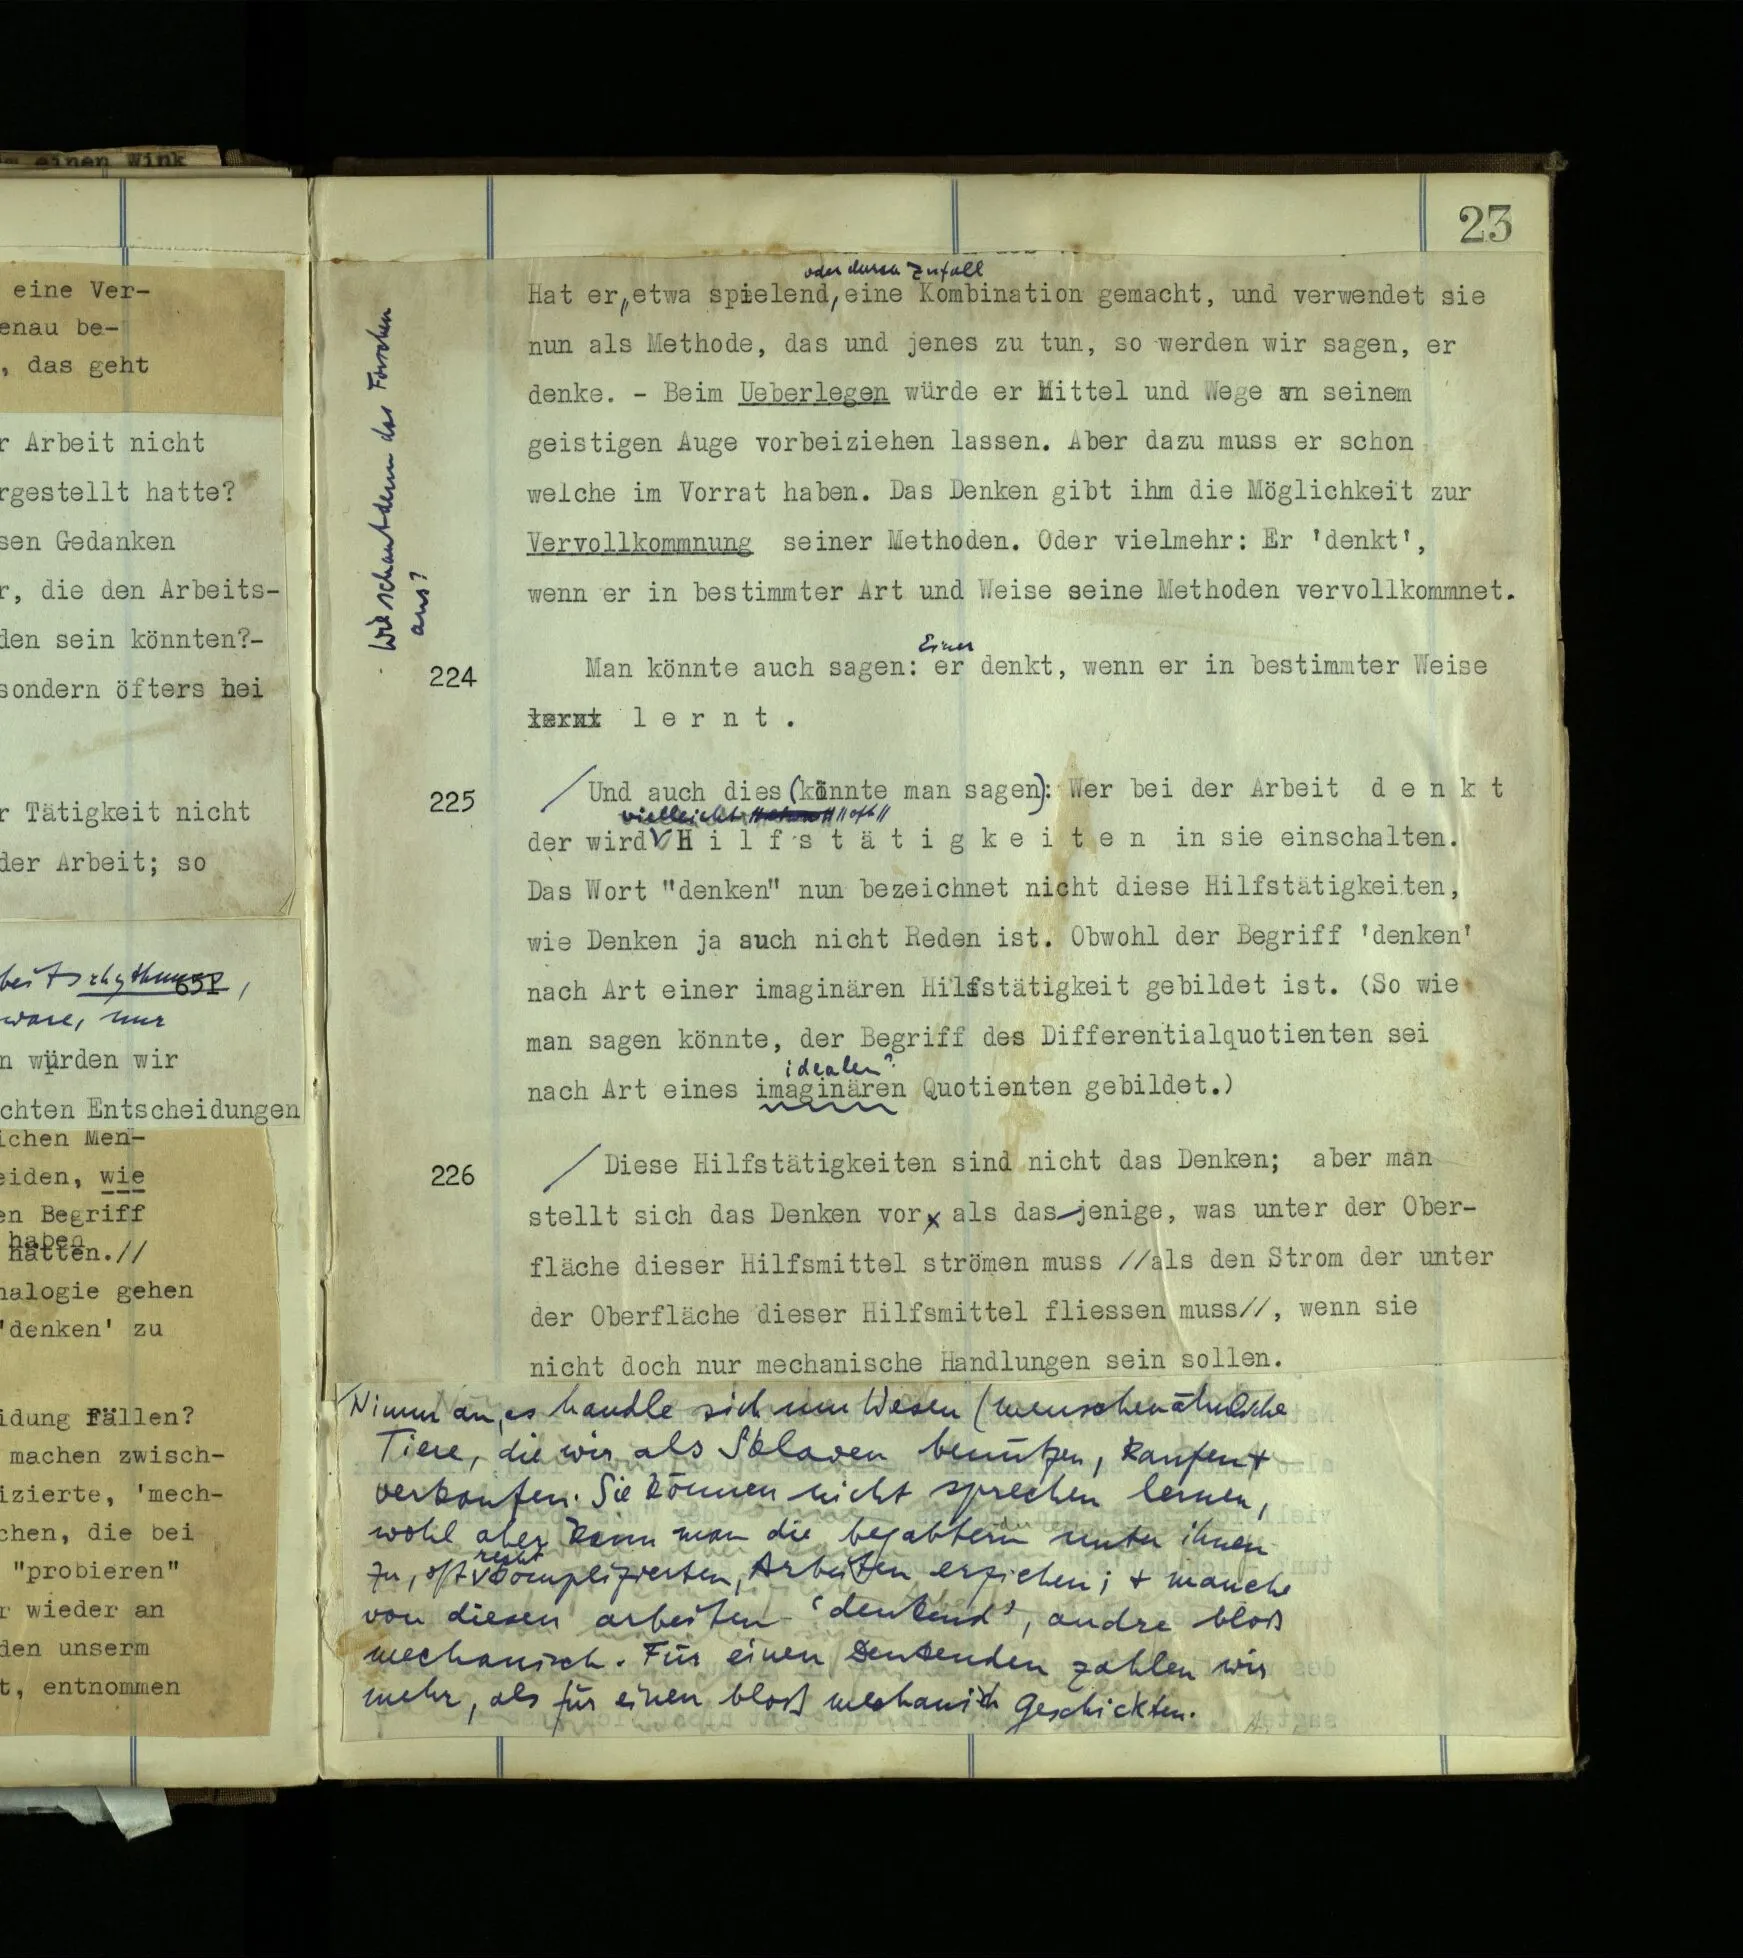 einen Wink
eine Ver-
enau be-
, das geht
r Arbeit nicht
rgestellt hatte?
sen Gedanken
r, die den Arbeits-
den sein könnten?-
sondern öfters bei
r Tätigkeit nicht
der Arbeit; so
beitsrhythmus,
wäre, nur
n würden wir
chten Entscheidungen
ichen Men-
eiden, wie
en Begriff
haben
hätten.//
nalogie gehen
'denken' zu
idung Fällen?
machen zwisch-
izierte, 'mech-
chen, die bei
"probieren"
r wieder an
den unserm
t, entnommen
23
oder durch Zufall
Hat er, etwa spielend, eine Kombination gemacht, und verwendet sie
nun als Methode, das und jenes zu tun, so werden wir sagen, er
denke. - Beim Ueberlegen würde er Mittel und Wege an seinem
geistigen Auge vorbeiziehen lassen. Aber dazu muss er schon
welche im Vorrat haben. Das Denken gibt ihm die Möglichkeit zur
Vervollkommnung seiner Methoden. Oder vielmehr: Er 'denkt',
wenn er in bestimmter Art und Weise seine Methoden vervollkommnet.
Wie schaut denn das Forschen
aus?
Einer
224 Man könnte auch sagen: er denkt, wenn er in bestimmter Weise
lernt l e r n t .
225 / Und auch dies (könnte man sagen): Wer bei der Arbeit d e n k t
vielleicht //oft//
der wird H i l f s t ä t i g k e i t e n in sie einschalten.
Das Wort "denken" nun bezeichnet nicht diese Hilfstätigkeiten,
wie Denken ja auch nicht Reden ist. Obwohl der Begriff 'denken'
nach Art einer imaginären Hilfstätigkeit gebildet ist. (So wie
man sagen könnte, der Begriff des Differentialquotienten sei
idealen?
nach Art eines imaginären Quotienten gebildet.)
226 / Diese Hilfstätigkeiten sind nicht das Denken; aber man
stellt sich das Denken vor als dasjenige, was unter der Ober-
fläche dieser Hilfsmittel strömen muss //als den Strom der unter
der Oberfläche dieser Hilfsmittel fliessen muss//, wenn sie
nicht doch nur mechanische Handlungen sein sollen.
/ Nimm an, es handle sich um Wesen (menschenähnliche
Tiere, die wir als Sklaven benützen, kaufen +
verkaufen. Sie können nicht sprechen lernen,
wohl aber kann man die begabtern unter ihnen
recht
zu, oft komplizierten, Arbeiten erziehen; + manche
von diesen arbeiten 'denkend', andre bloß
mechanisch. Für einen Denkenden zahlen wir
mehr, als für einen bloß mechanisch Geschickten.